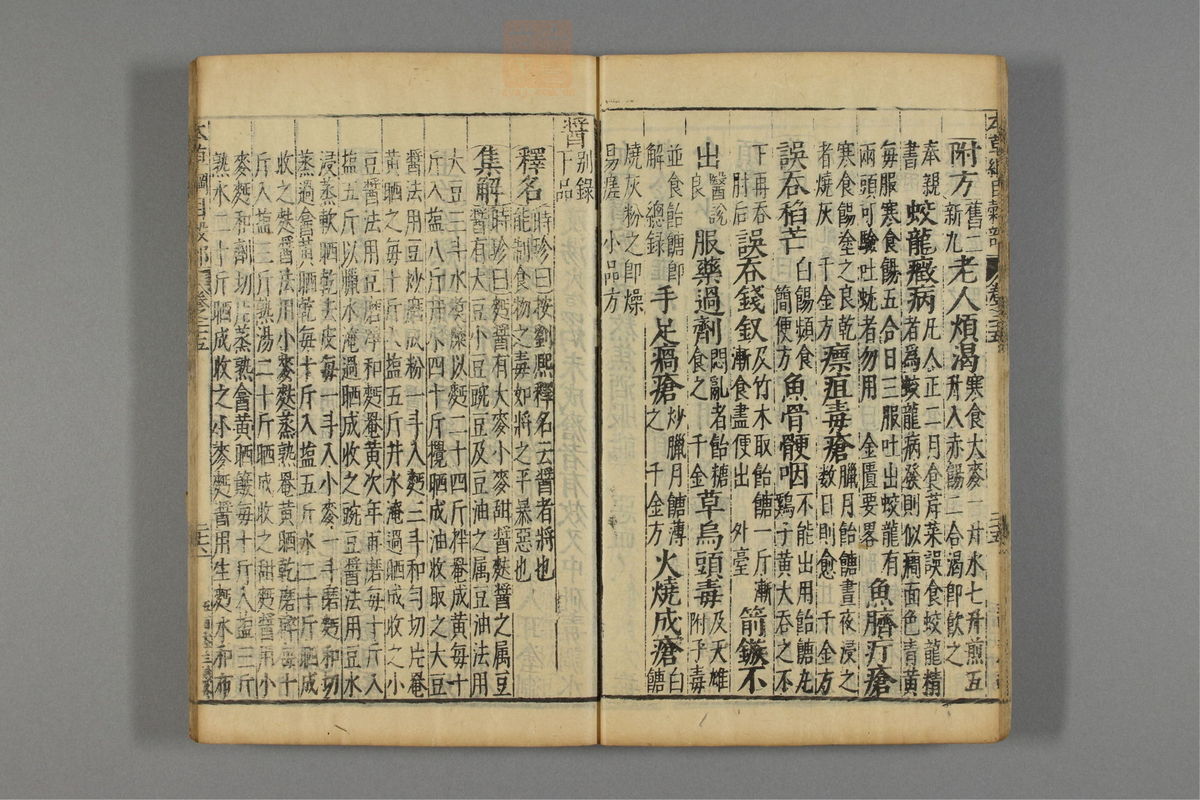 本草綱目穀部 卷之二十五 二五
附方舊二新九老人煩渴寒食大麥一升水七升煎五升入赤餳二合渴即飲之
奉親書蛟龍癥病凡人正二月食芹菜誤食蛟龍精者為蛟龍病發則似癎面色青黃
每服寒食餳五合日三服吐出蛟龍有兩頭可驗吐蚘者勿用 金匱要畧魚臍疔瘡
寒食餳塗之良乾者燒灰 千金方瘭疽毒瘡臘月飴餹晝夜浸之數日則愈 千金方
誤吞稻芒白餳頻食簡便方魚骨骾咽不能出用飴餹丸雞子黃大吞之不
下再吞肘后誤吞錢釵及竹木取飴餹一斤漸漸食盡便出 外臺箭鏃不
出醫說良服藥過劑悶亂者飴糖食之 千金草烏頭毒及天雄附子毒
並食飴餹即解 總錄手足瘑瘡炒臘月餹薄之 千金方火燒成瘡白餹
燒灰粉之即燥易瘥 小品方
醬別錄下品
釋名時珍曰按劉熙釋名云醬者將也能制食物之毒如將之平暴惡也
集解時珍曰麪醬有大麥小麥甜醬麩醬之属豆醬有大豆小豆豌豆及豆油之属豆油法用
大豆三斗水煮糜以麪二十四斤拌罨成黃每十斤入鹽八斤井水四十斤攪晒成油收取之大豆
醬法用豆炒磨成粉一斗入麪三斗和勻切片罨黃晒之每十斤入鹽五斤井水淹過晒成收之小
豆醬法用豆磨淨和麪罨黃次年再磨每十斤入鹽五斤以臘水淹過晒成收之豌豆醬法用豆水
浸蒸軟晒乾去皮每一斗入小麥一斗磨麪和切蒸過盦黃晒乾每十斤入鹽五斤水二十斤晒成
收之麩醬法用小麥麩蒸熟罨黃晒乾磨碎每十斤入鹽三斤熟湯二十斤晒成收之甜麪醬用小
麥麪和劑切片蒸熟盦黃晒簸每十斤入鹽三斤熟水二十斤晒成收之小麥麪醬用生麪水和布
本草綱目穀部 卷之二十五 二六